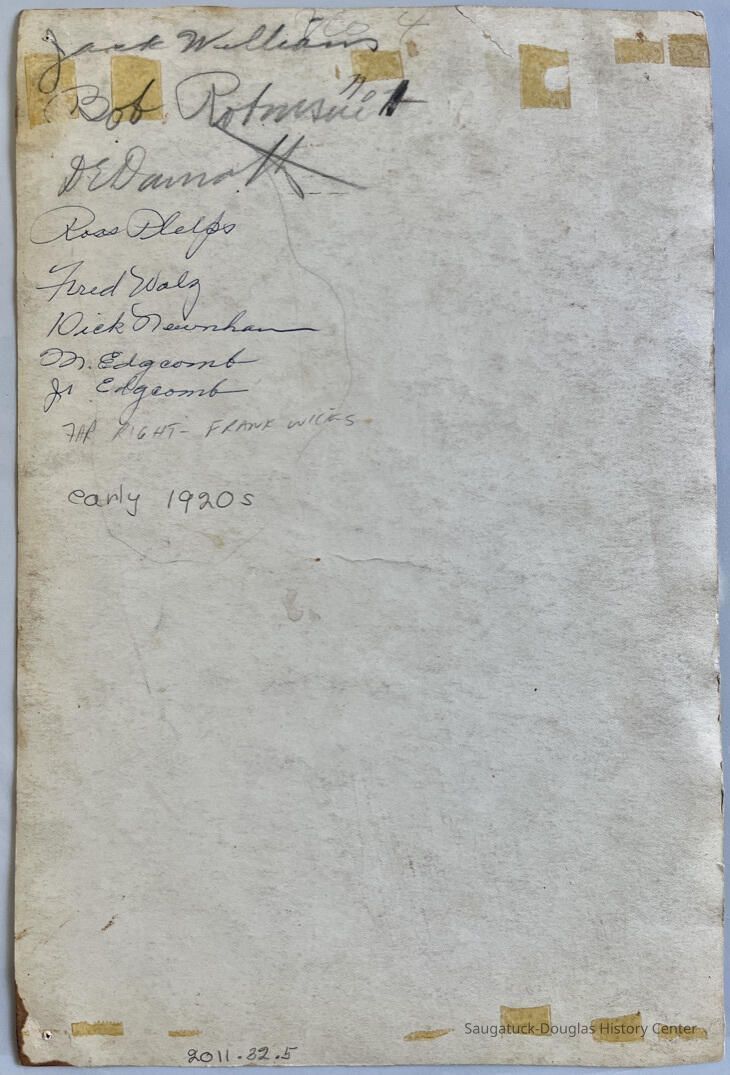 Jack Williams
Bob
DeDarnatt
Ross Phelps
Fred Walz
Dick Newnham
M. Edgcomb
Jr Edgcomb
FAR RIGHT- FRANK WICKS
early 1920s
Saugatuck-Douglas History Center
2011.32.5